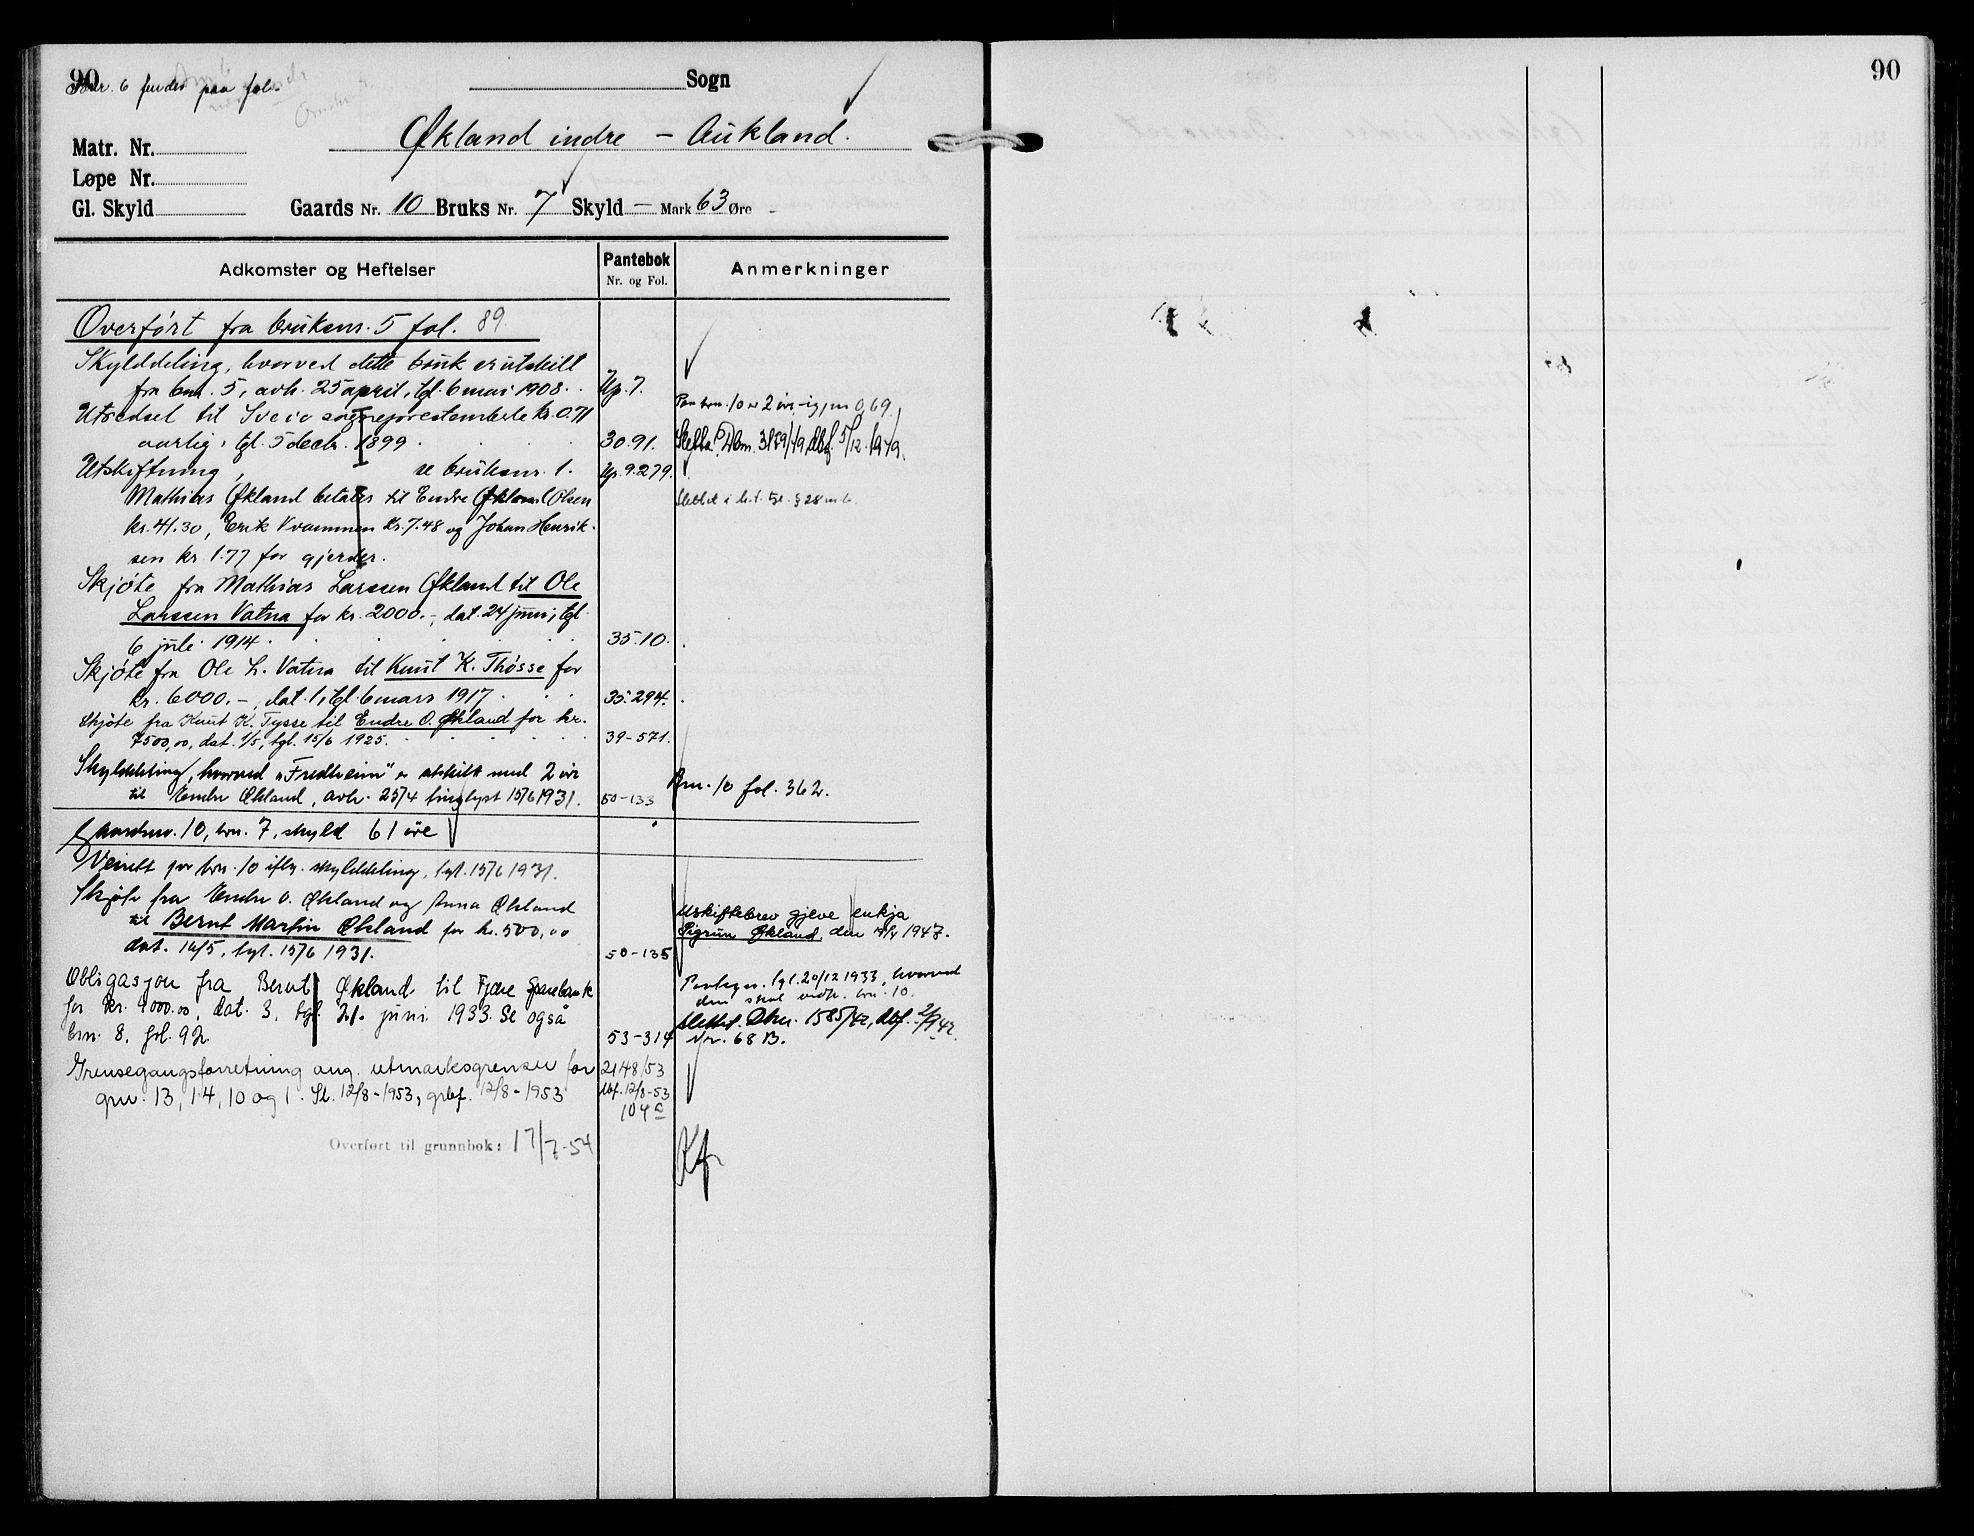 90
Bnr. 6 findes paa fol.
Sogn
Økland indre – Aukland.
Matr. Nr.
Løpe Nr.
Gl. Skyld
Gaards Nr. 10 Bruks Nr. 7 Skyld – Mark 63 Øre
Adkomster og Heftelser
Pantebok
Nr. og Fol.
Anmerkninger
Overført fra bruksnr. 5 fol. 89.
Skylddeling, hvorved dette bruk er utskilt
fra bnr. 5, avh. 25 april, tgl. 6 mai 1908. Up. 7.
Utsedsel til Sveio sogneprestembede kr. 0.71 Paa brn. 10 er 2 øre
aarlig, tgl. 5 decbr. 1899 30.91. Dbnr. 3159/49, dbf. 5/12. 1949.
Utskiftning, se bruksnr. 1. Up. 9.279.
Mathias Økland betaler til Endre Økland Olsen § 28
kr. 41.30, Erik Kvammen kr. 7.48 og Johan Henrik-
sen kr. 1.77 for gjerder.
Skjøte fra Mathias Larssen Økland til Ole
Larssen Vatna for kr. 2000.-, dat. 24 juni, tgl.
6 juli 1914. 35.10.
Skjøte fra Ole L. Vatna til Knut K. Thösse for
kr. 6000.-, dat. 1, tgl. 6 mars 1917. 35.294.
Skjöte fra Knut K. Tysse til Endre O. Økland for kr.
7500,00, dat. 1/5, tgl. 15/6 1925. 39-571.
Skylddeling, hvorved "Fredheim" er utskilt med 2 øre
til Endre Økland, avh. 25/4 tinglyst 15/6 1931. 50-133 Brn. 10 fol. 362.
Gaardsnr. 10, brn. 7, skyld 61 öre
Veirett for brn. 10 ifлg. skylddeling, tgl. 15/6 1931.
Skjøte fra Endre O. Økland og Anna Økland
til Bernt Martin Økland for kr. 500,00
dat. 14/5, tgl. 15/6 1931. 50-135
Uskiftebrev gjeve enkja
Sigrun Økland, den 1947.
Obligasjon fra Bernt Økland til Fjære Sparebank
for kr. 4000.00, dat. 3, tgl. 21. juni 1933. Se også
brn. 8, fol. 92. 53-314
tgl. 20/12 1933, hvorved
den skal vedk. brn. 10.
Slettet. Dbnr. 1585/42, dbf. 2/9 42.
Nr. 68 B.
Grensegangsforretning ang. utmarksgrensen for 2148/53
gnr. 13, 14, 10 og 1. Sl. 12/8-1953, grbf. 12/8-1953 dbf. 12/8-53
104
Overført til grunnbok: 17/7-54
90